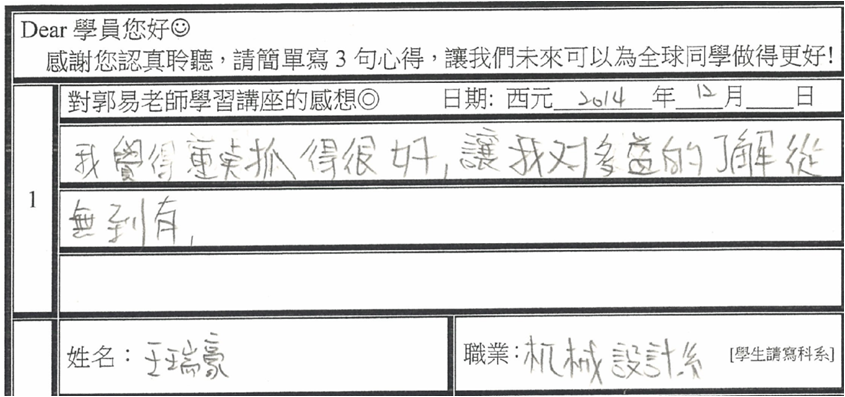 Dear 學員您好☺
感謝您認真聆聽，請簡單寫 3 句心得，讓我們未來可以為全球同學做得更好!
對郭易老師學習講座的感想◎ 日期: 西元 2014 年 12 月 日
1
我覺得重点抓得很好,讓我对多益的了解從
無到有,
姓名：王瑞豪
職業：机械設計系 [學生請寫科系]